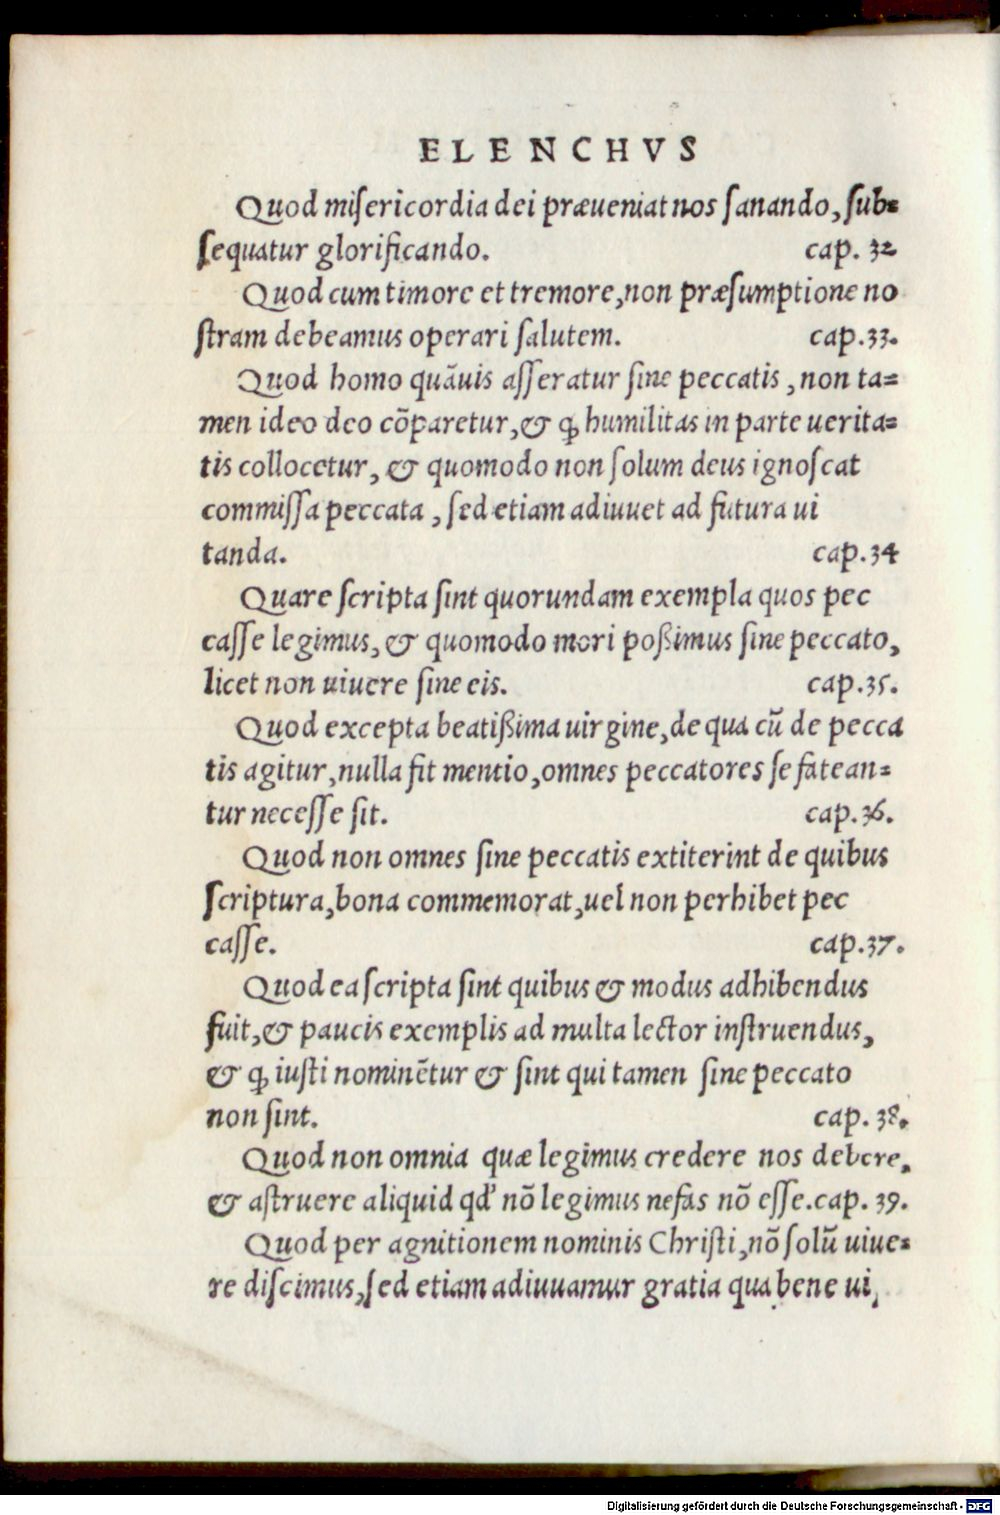 ELENCHVS
Quod miſericordia dei præueniat nos ſanando, ſub-
ſequatur glorificando. cap. 32
Quod cum timore et tremore, non præſumptione no
ſtram debeamus operari ſalutem. cap. 33.
Quod homo quāuis aſſeratur ſine peccatis, non ta-
men ideo deo cōparetur, & ꝙ humilitas in parte uerita-
tis collocetur, & quomodo non ſolum deus ignoſcat
commiſſa peccata, ſed etiam adiuuet ad futura ui
tanda. cap. 34
Quare ſcripta ſint quorundam exempla quos pec
caſſe legimus, & quomodo mori poßimus ſine peccato,
licet non uiuere ſine eis. cap. 35.
Quod excepta beatißima uirgine, de qua cū de pecca
tis agitur, nulla fit mentio, omnes peccatores ſe fatean-
tur neceſſe ſit. cap. 36.
Quod non omnes ſine peccatis extiterint de quibus
ſcriptura, bona commemorat, uel non perhibet pec
caſſe. cap. 37.
Quod ea ſcripta ſint quibus & modus adhibendus
fuit, & paucis exemplis ad multa lector inſtruendus,
& ꝙ iuſti nominētur & ſint qui tamen ſine peccato
non ſint. cap. 38.
Quod non omnia quæ legimus credere nos debere,
& aſtruere aliquid qd' nō legimus nefas nō eſſe. cap. 39.
Quod per agnitionem nominis Chriſti, nō ſolū uiue-
re diſcimus, ſed etiam adiuuamur gratia qua bene ui,
Digitalisierung gefördert durch die Deutsche Forschungsgemeinschaft - DFG